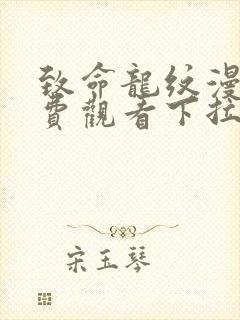 致命龍紋漫
費觀看下拉
宋玉琴